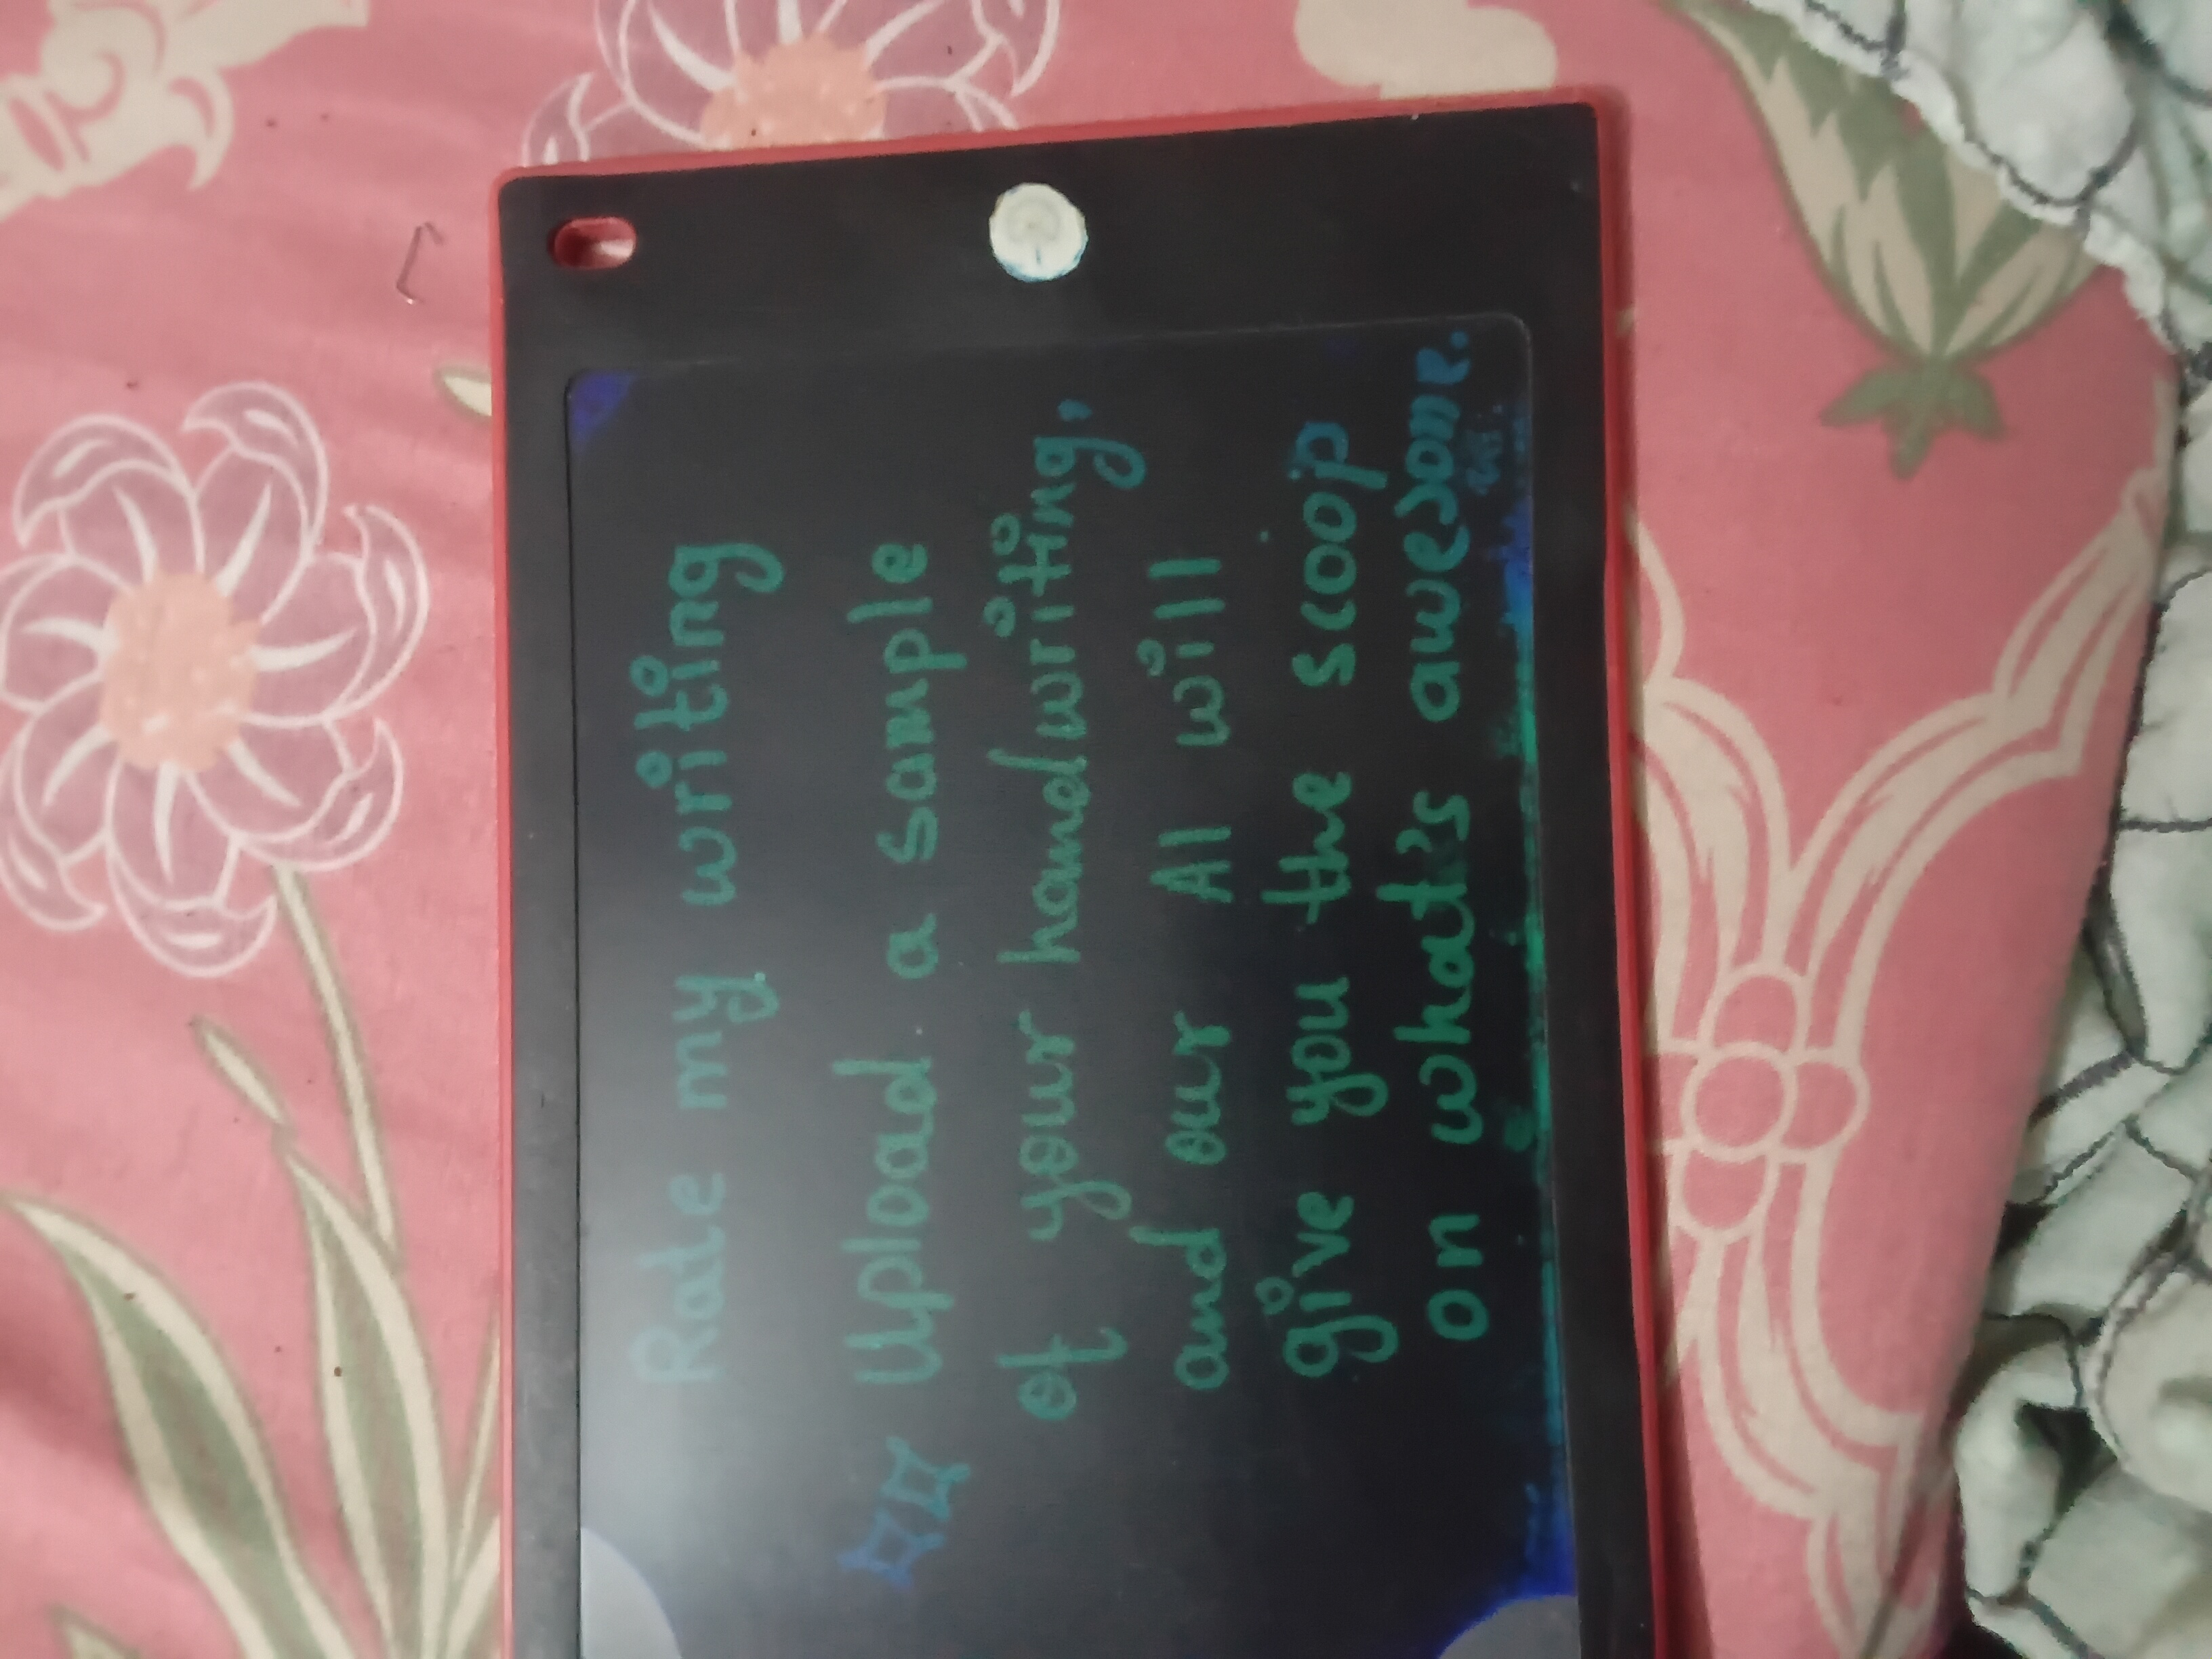 Rate my writing
Upload a sample
of your handwriting,
and our AI will
give you the scoop
on what's awesome.